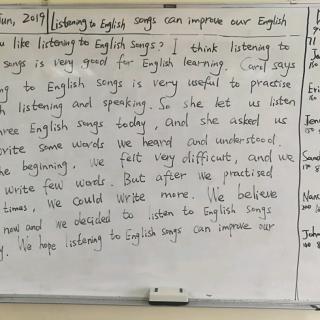 Jun, 2019 Listening to English songs can improve our English
you like listening to English songs? I think listening to
songs is very good for English learning. Carol says
ng to English songs is very useful to practise
h listening and speaking. So she let us listen
hree English songs today, and she asked us
write some words we heard and understood.
he beginning, we felt very difficult, and we
write few words. But after we practised
times, we could write more. We believe
now and we decided to listen to English songs
y. We hope listening to English songs can improve our